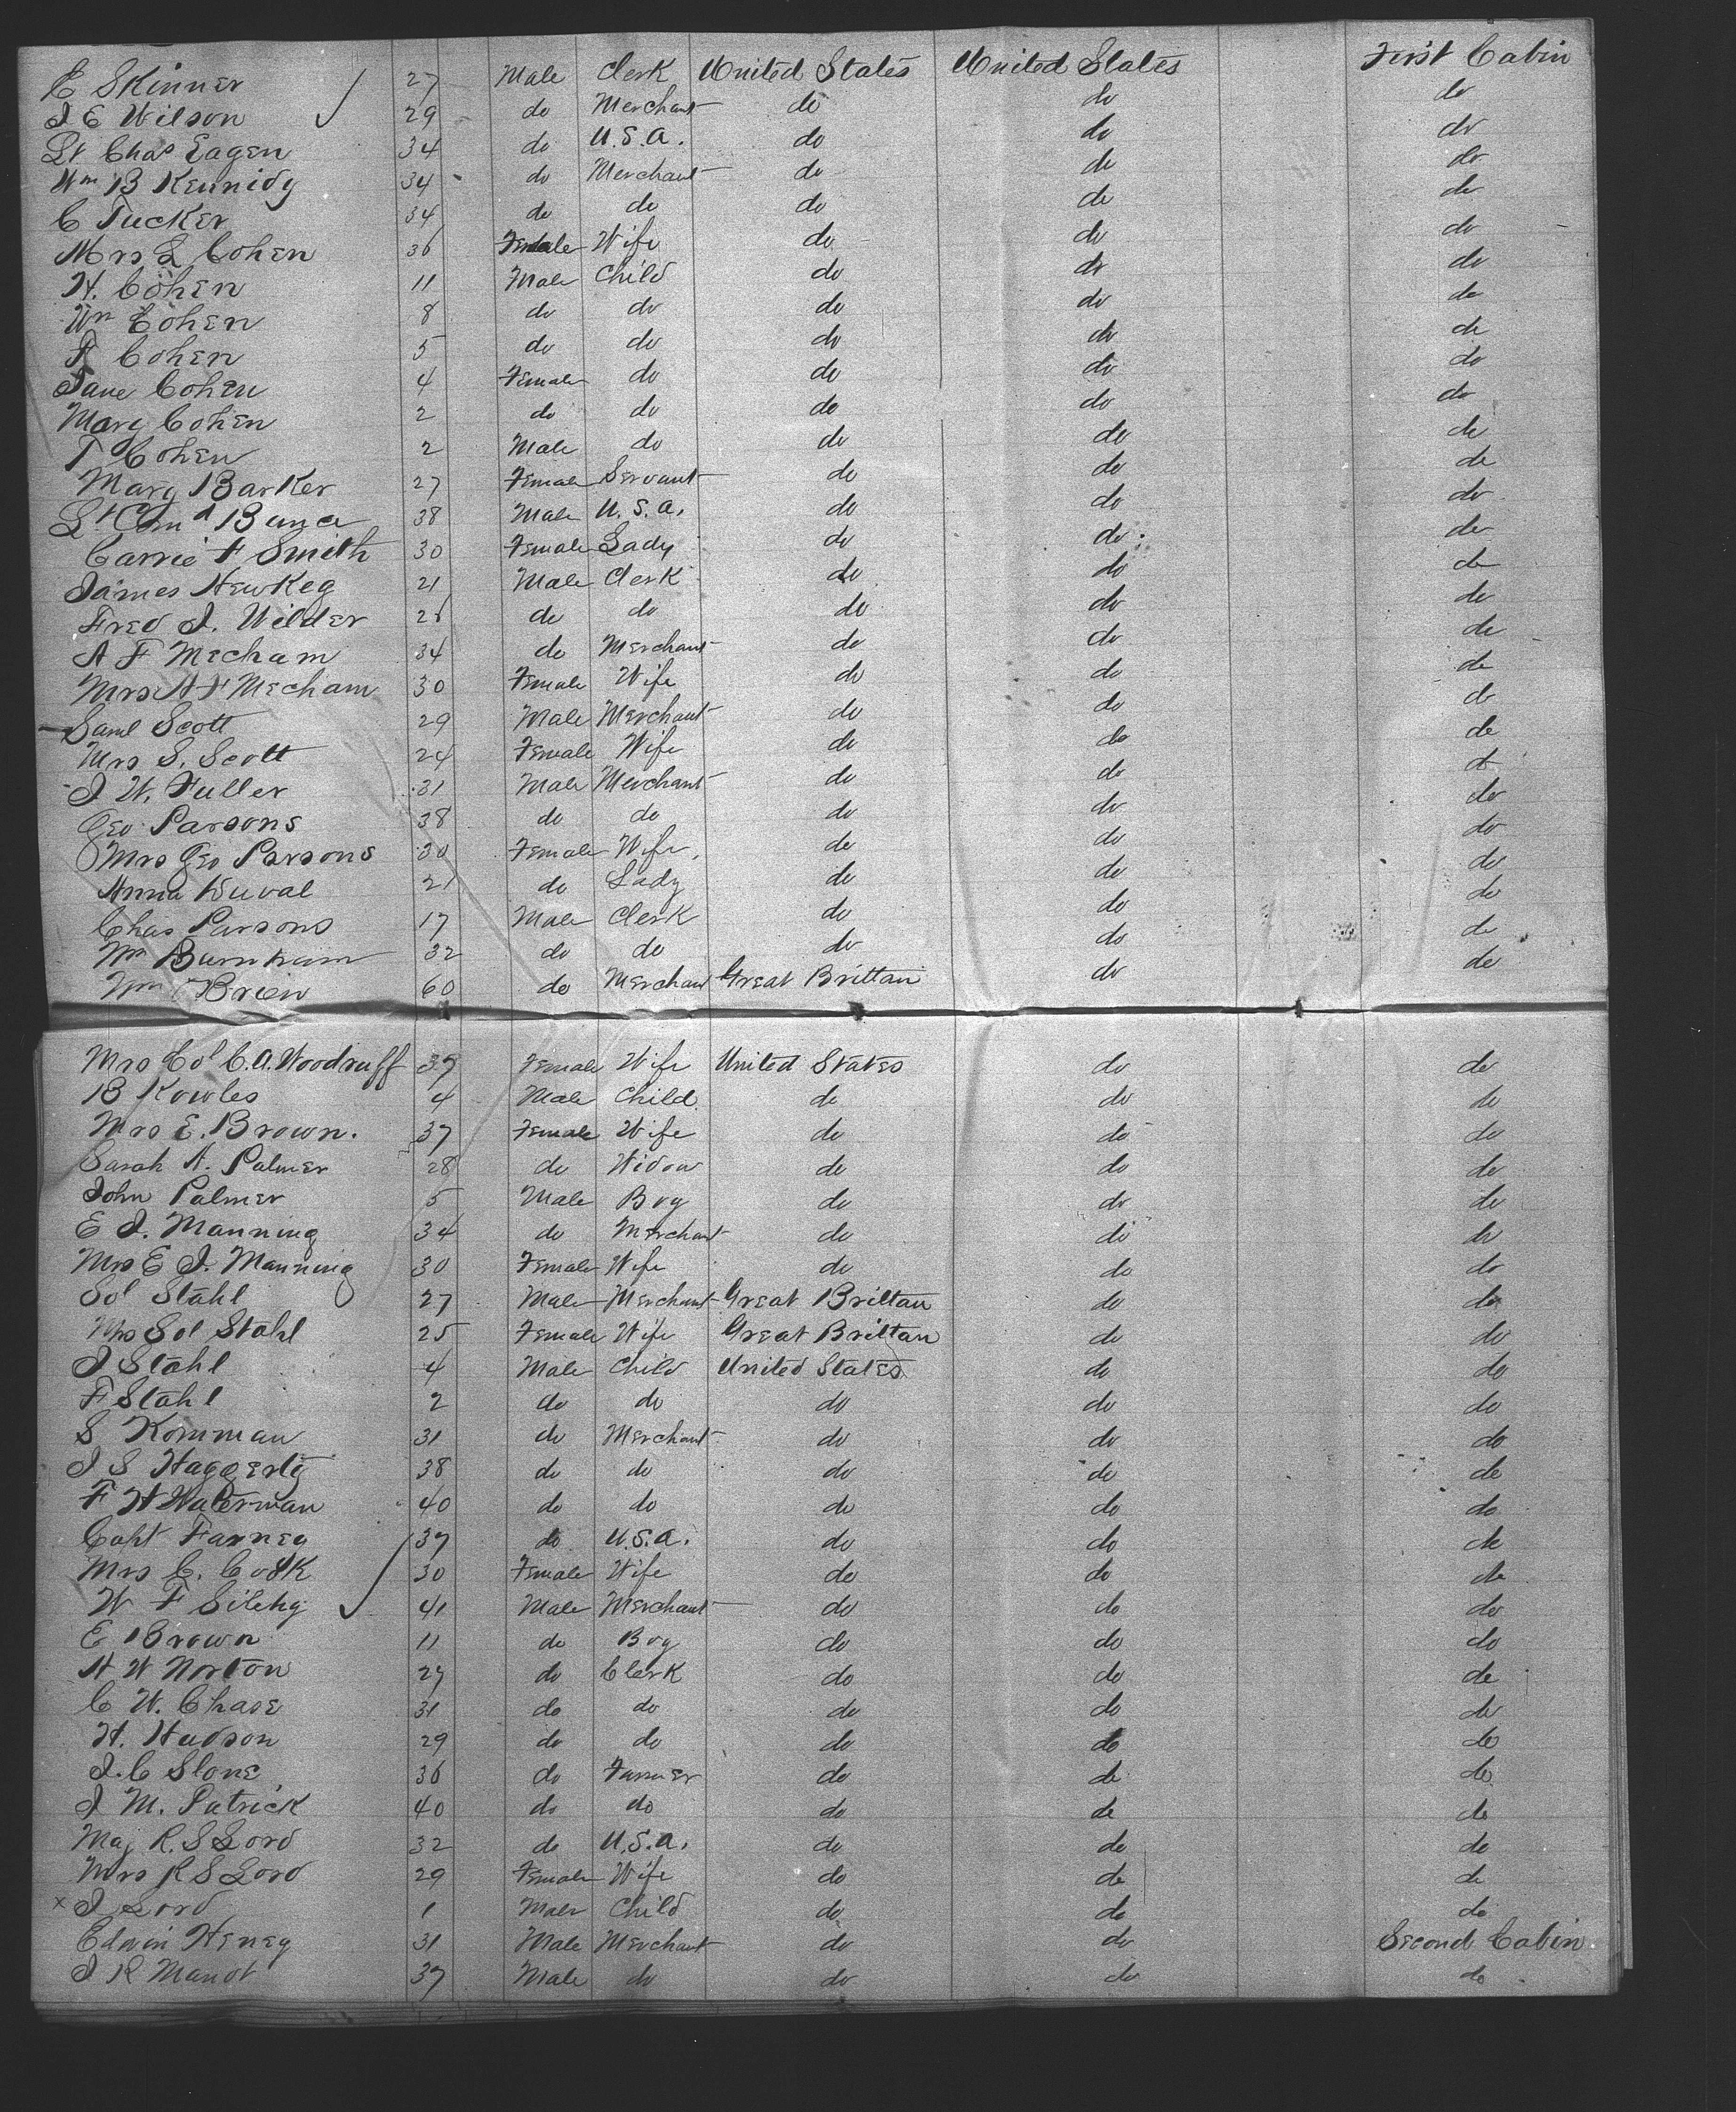 E Skinner 27 Male Clerk United States United States First Cabin
J E Wilson 29 do Merchant do do do
Lt Chas Eagen 34 do U.S.A. do do do
Wm B Kennidy 34 do Merchant do do do
C Tucker 34 do do do do do
Mrs L Cohen 36 Female Wife do do do
H. Cohen 11 Male Child do do do
Wm Cohen 8 do do do do do
F Cohen 5 do do do do do
Jane Cohen 4 Female do do do do
Mary Cohen 2 do do do do do
T Cohen 2 Male do do do do
Mary Barker 27 Female Servant do do do
Lt Comd Bunce 38 Male U.S.A. do do do
Carrie F Smith 30 Female Lady do do do
James Newkeg 21 Male Clerk do do do
Fred J. Wilder 26 do do do do do
A F Mecham 34 do Merchant do do do
Mrs A F Mecham 30 Female Wife do do do
Saml Scott 29 Male Merchant do do do
Mrs S. Scott 24 Female Wife do do do
J W. Fuller 31 Male Merchant do do do
Geo Parsons 38 do do do do do
Mrs Geo Parsons 30 Female Wife do do do
Anna Duval 21 do Lady do do do
Chas Parsons 17 Male Clerk do do do
Wm Burnham 32 do do do do do
Wm OBrien 60 do Merchant Great Brittain do do
Mrs Col C.A. Woodruff 37 Female Wife United States do do
B Kowles 4 Male Child do do do
Mrs E. Brown. 37 Female Wife do do do
Sarah A. Palmer 28 do Widow do do do
John Palmer 5 Male Boy do do do
E J. Manning 34 do Merchant do do do
Mrs E J. Manning 30 Female Wife do do do
Sol Stahl 27 Male Merchant Great Brittan do do
Mrs Sol Stahl 25 Female Wife Great Brittan do do
J Stahl 4 Male Child United States do do
F Stahl 2 do do do do do
S Komman 31 do Merchant do do do
J S Haggerty 38 do do do do do
F H Waterman 40 do do do do do
Capt Farney 37 do U.S.A. do do do
Mrs C. Cook 30 Female Wife do do do
W F 41 Male Merchant do do do
E Brown 11 do Boy do do do
H W Norton 27 do Clerk do do do
C W. Chase 31 do do do do do
H. Hudson 29 do do do do do
J. C Slone 36 do Farmer do do do
J M. Patrick 40 do do do do do
Maj R. S Lord 32 do U.S.A. do do do
Mrs R S Lord 29 Female Wife do do do
x J Lord 1 Male Child do do do
Edwin Heney 31 Male Merchant do do Second Cabin
J R 37 Male do do do do